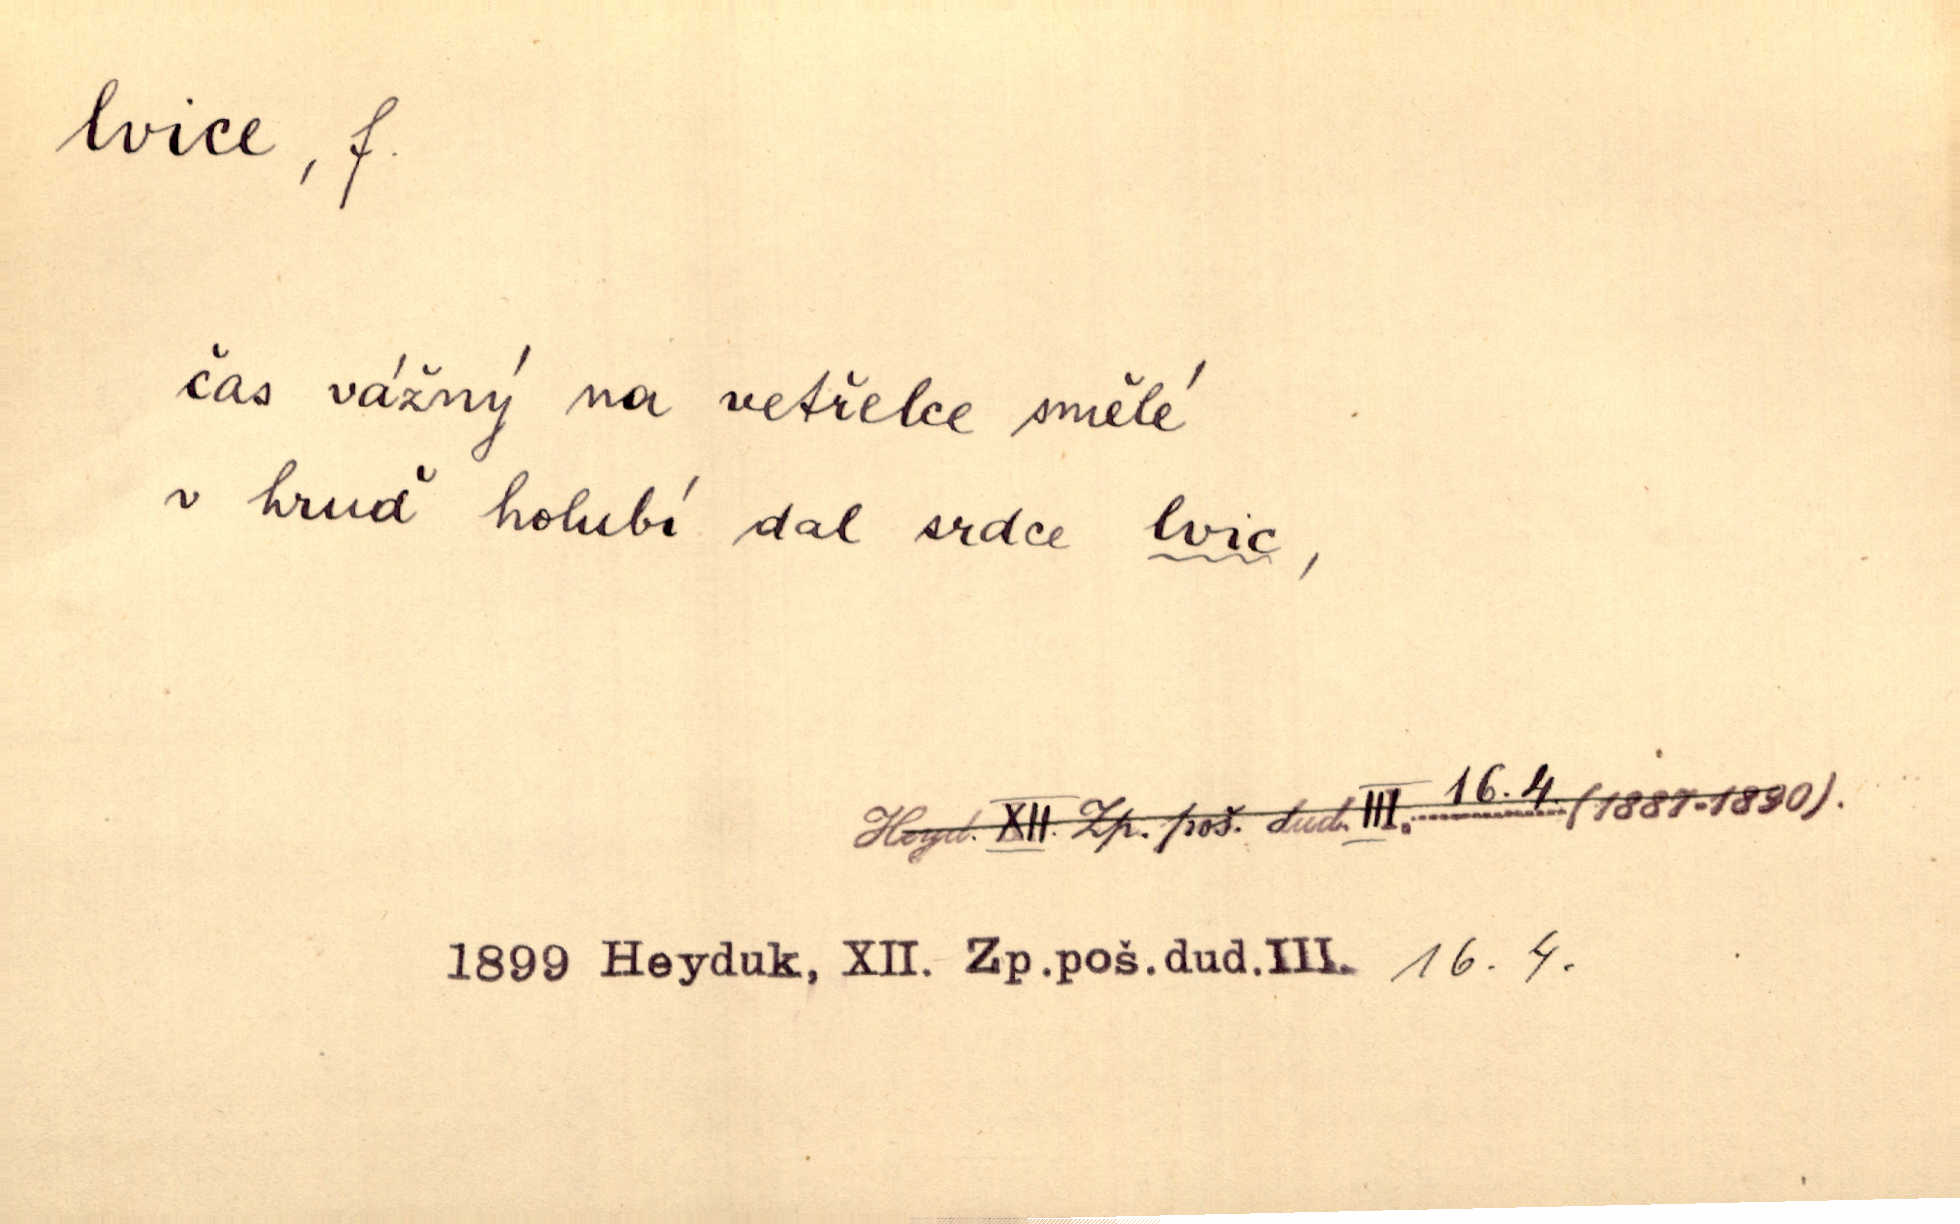 lvice, f.
čas vážný na vetřelce smělé
v hruď holubí dal srdce lvic,
Heyd. XII. Zp. poš. dud. III. 16. 4. (1887-1890).
1899 Heyduk, XII. Zp.poš.dud.III. 16. 4.